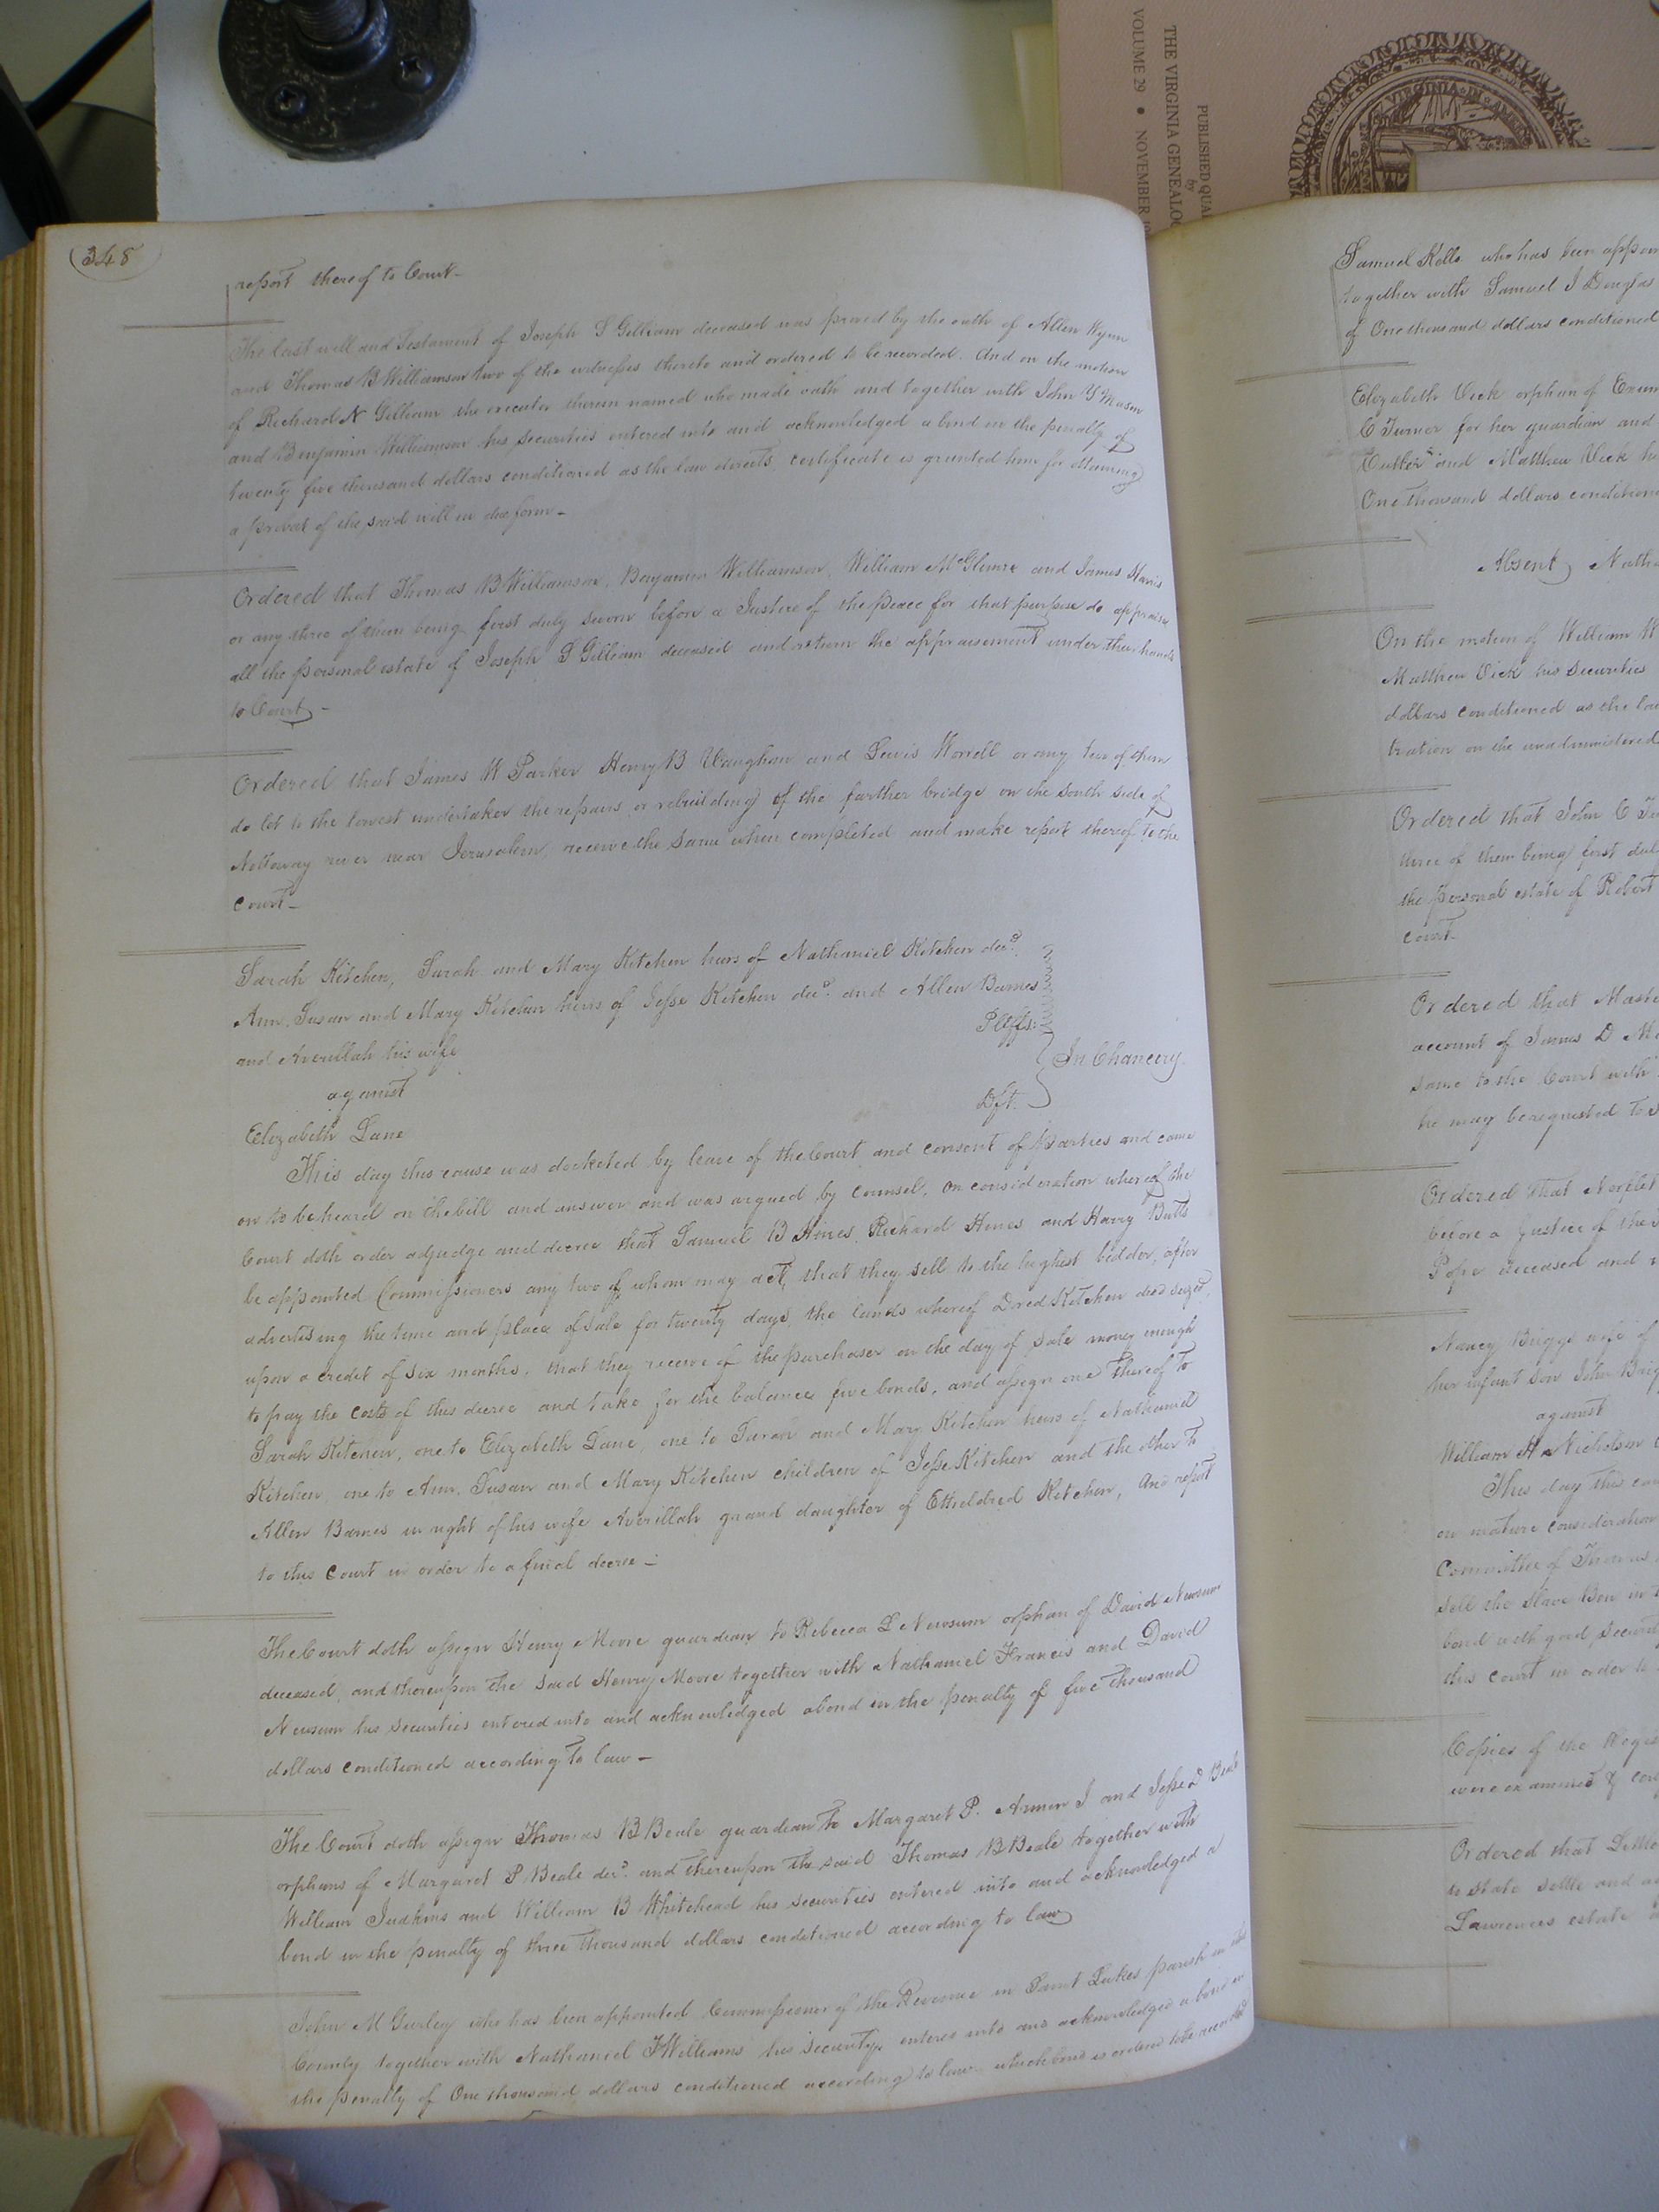 THE VIRGINIA GENEALO
VOLUME 29 • NOVEMBER
PUBLISHED QUA
by
VIRGINIA IN
348
report thereof to Court –
The last will and Testament of Joseph S Gilliam deceased was proved by the oath of Allen Wynn
and Thomas B Williamson two of the witnesses thereto and ordered to be recorded. And on the motion
of Richard N Gilliam the executor therein named who made oath and together with John Y Mason
and Benjamin Williamson his securities entered into and acknowledged a bond in the penalty of
twenty five thousand dollars conditioned as the law directs, certificate is granted him for obtaining
a probat of the said will in due form –
Ordered that Thomas B Williamson, Benjamin Williamson, William McGlemre and James Harris
or any three of them being first duly sworn before a Justice of the peace for that purpose do appraise
all the personal estate of Joseph S Gilliam deceased and return the appraisement under their hands
to Court –
Ordered that James W Parker Henry B Vaughan and Lewis Worrell or any two of them
do let to the lowest undertaker the repairs or rebuilding of the farther bridge on the South side of
Nottoway river near Jerusalem, receive the same when completed and make report thereof to the
Court –
Sarah Kitchen, Sarah and Mary Kitchen heirs of Nathaniel Kitchen decd.
Ann, Susan and Mary Kitchen heirs of Jesse Kitchen decd. and Allen Barnes
and Averillah his wife Pltffs:
against In Chancery
Elizabeth Lane Dft.
This day this cause was docketed by leave of the Court and consent of parties and came
on to be heard on the bill and answer and was argued by counsel, on consideration whereof the
Court doth order adjudge and decree that Samuel B Hines, Richard Hines and Harry Butts
be appointed Commissioners any two of whom may act, that they sell to the highest bidder, after
advertising the time and place of sale for twenty days, the lands whereof Dred Kitchen died seized,
upon a credit of six months, that they receive of the purchaser on the day of sale money enough
to pay the costs of this decree and take for the balance five bonds, and assign one thereof to
Sarah Kitchen, one to Elizabeth Lane, one to Sarah and Mary Kitchen heirs of Nathaniel
Kitchen, one to Ann, Susan and Mary Kitchen children of Jesse Kitchen and the other to
Allen Barnes in right of his wife Averillah grand daughter of Etheldred Kitchen, And report
to this Court in order to a final decree –
The Court doth assign Henry Moore guardian to Rebecca L Newsum orphan of David Newsum
deceased, and thereupon the said Henry Moore together with Nathaniel Francis and David
Newsum his securities entered into and acknowledged a bond in the penalty of five thousand
dollars conditioned according to law –
The Court doth assign Thomas B Beale guardian to Margaret P. Armin J and Jesse D Beale
orphans of Margaret P Beale decd. and thereupon the said Thomas B Beale together with
William Judkins and William B Whitehead his securities entered into and acknowledged a
bond in the penalty of three thousand dollars conditioned according to law
John M Gurley who has been appointed Commissioner of the Revenue in Saint Lukes parish in this
County together with Nathaniel T Williams his security, entered into and acknowledged a bond in
the penalty of One thousand dollars conditioned according to law which bond is ordered to be recorded
Samuel Kello who has been appoin
together with Samuel J Douglas
of One thousand dollars conditioned
Elizabeth Vick orphan of Exum
C Turner for her guardian and
and Matthew Vick his
One thousand dollars condition
Absent, Natha
On the motion of William W
Matthew Vick his Securities
dollars conditioned as the law
tration on the unadministered
Ordered that John C Tu
three of them being first dul
the personal estate of Robert
court.
Ordered that Maste
account of James D
same to the Court with
he may be requested to s
Ordered that Norflet
before a Justice of the
Pope deceased and
Nancy Briggs wife of
her infant son John Brig
against
William H Nicholson
This day this cau
on mature consideration
Committee of Thomas
sell the slave Ben in
bond with good security
this court in order to
Copies of the
were examined &
Ordered that
to state settle and a
Lawrences estate